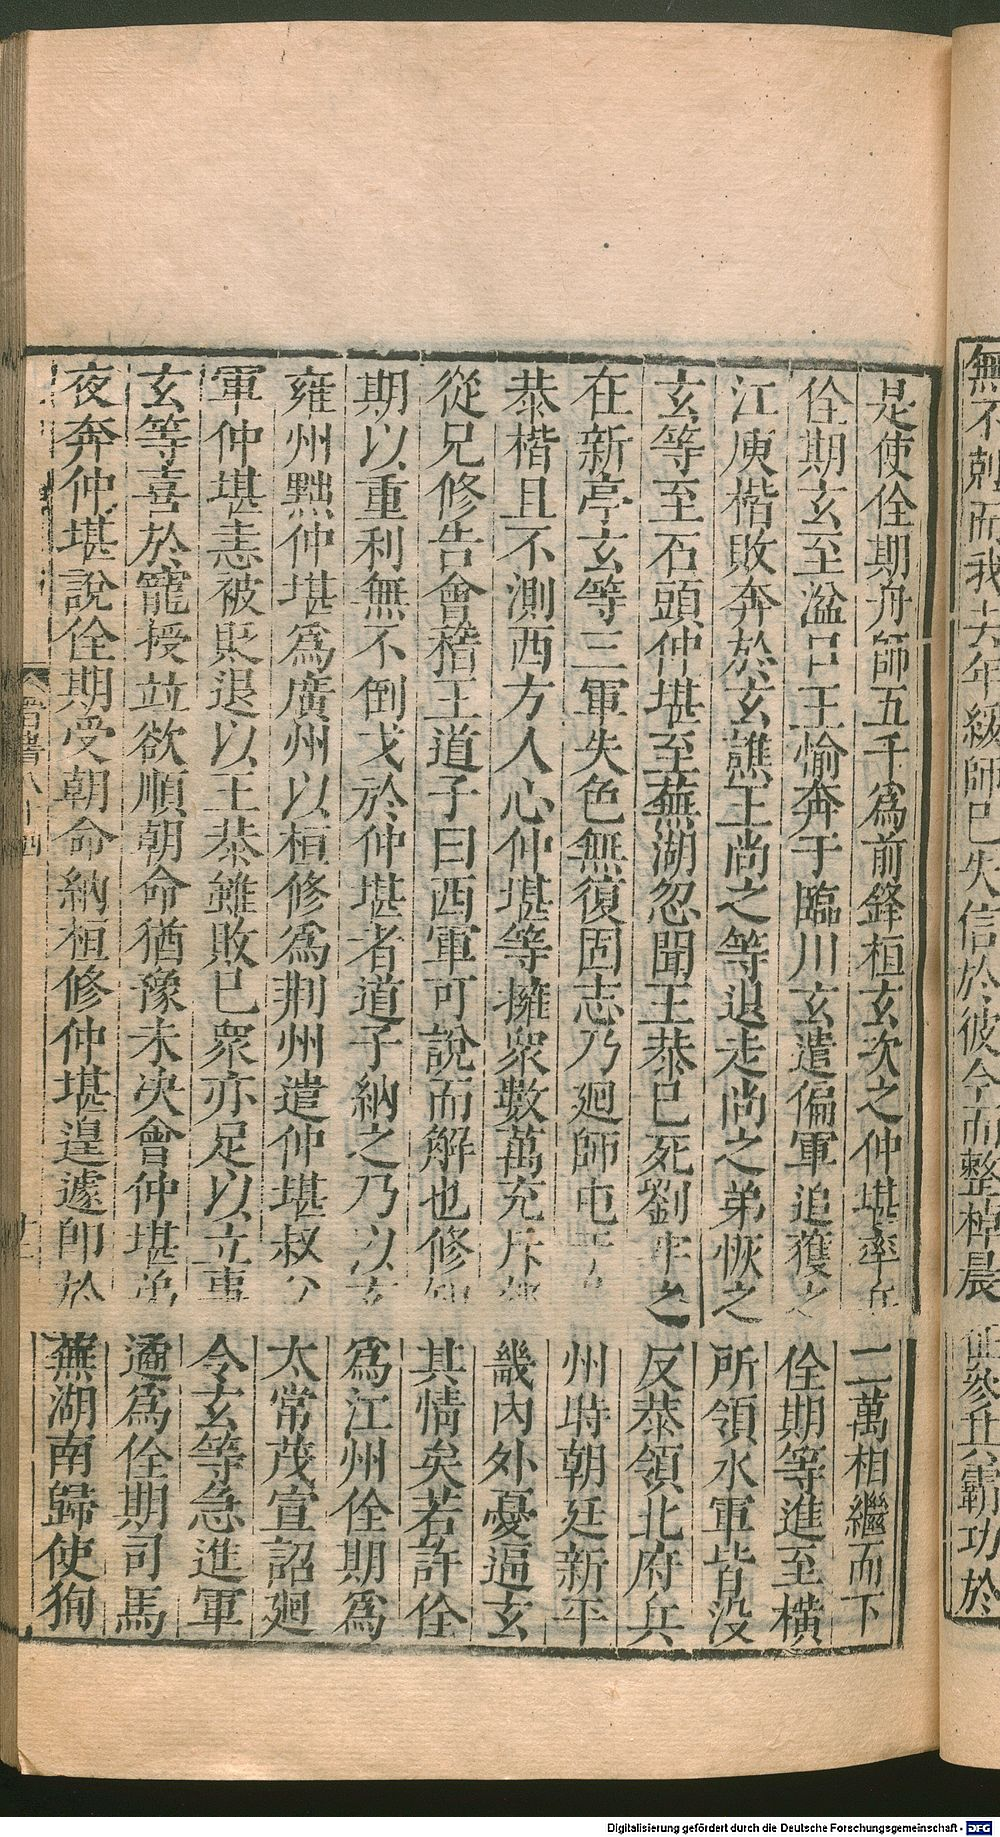 無不剋而我去年緩師已失信於彼今而整棹晨征參其霸功於
是使佺期舟師五千爲前鋒桓玄次之仲堪率兵二萬相繼而下
佺期玄至湓口王愉奔于臨川玄遣偏軍追獲之佺期等進至橫
江庾楷敗奔於玄譙王尚之等退走尚之弟恢之所領水軍皆没
玄等至石頭仲堪至蕪湖忽聞王恭已死劉牢之反恭領北府兵
在新亭玄等三軍失色無復固志乃廻師屯州時朝廷新平
恭楷且不測西方人心仲堪等擁衆數萬充斥畿内外憂逼玄
從兄修告會稽王道子曰西軍可說而解也修知其情矣若許佺
期以重利無不倒戈於仲堪者道子納之乃以玄爲江州佺期爲
雍州黜仲堪爲廣州以桓修爲荆州遣仲堪叔父太常茂宣詔廻
軍仲堪恚被貶退以王恭雖敗已衆亦足以立事令玄等急進軍
玄等喜於寵授竝欲順朝命猶豫未決會仲堪弟遹爲佺期司馬
夜奔仲堪說佺期受朝命納桓修仲堪遑遽卽於蕪湖南歸使狥
晋書八十四
Digitalisierung gefördert durch die Deutsche Forschungsgemeinschaft - DFG